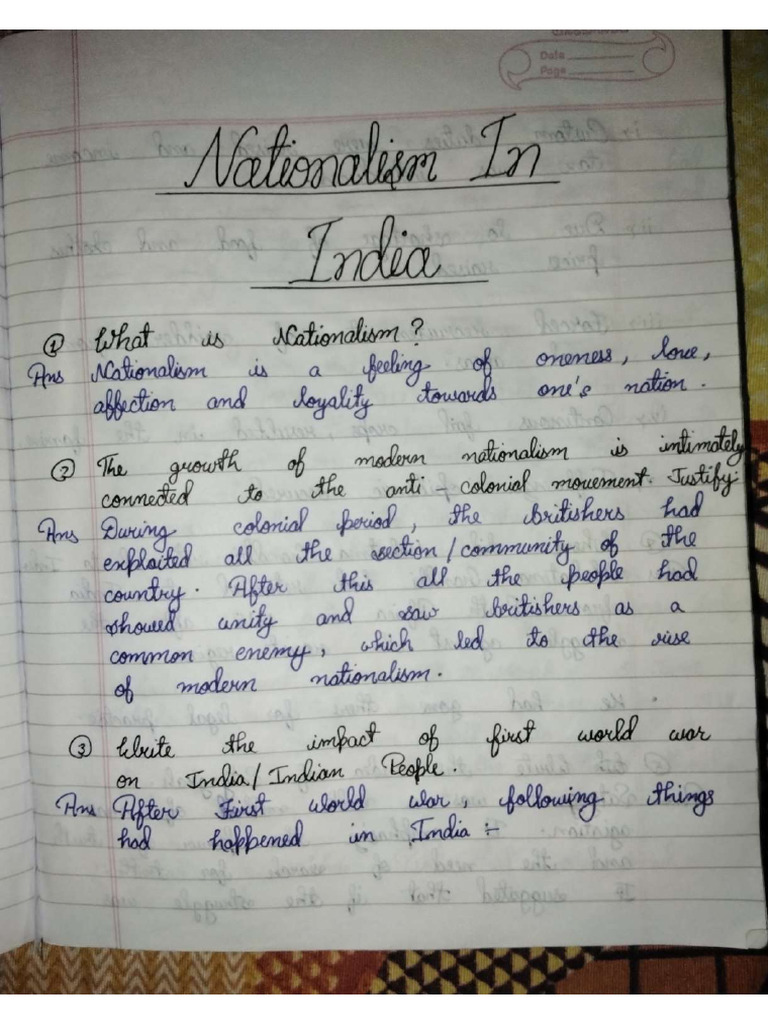 Date
Page
Nationalism In
India
① What is Nationalism?
Ans Nationalism is a feeling of oneness, love,
affection and loyality towards one's nation.
② The growth of modern nationalism is intimately
connected to the anti-colonial movement. Justify.
Ans During colonial period, the britishers had
exploited all the section/community of the
country. After this all the people had
showed unity and saw britishers as a
common enemy, which led to the rise
of modern nationalism.
③ Write the impact of first world war
on India/Indian People.
Ans After First world war, following things
had happened in India :-